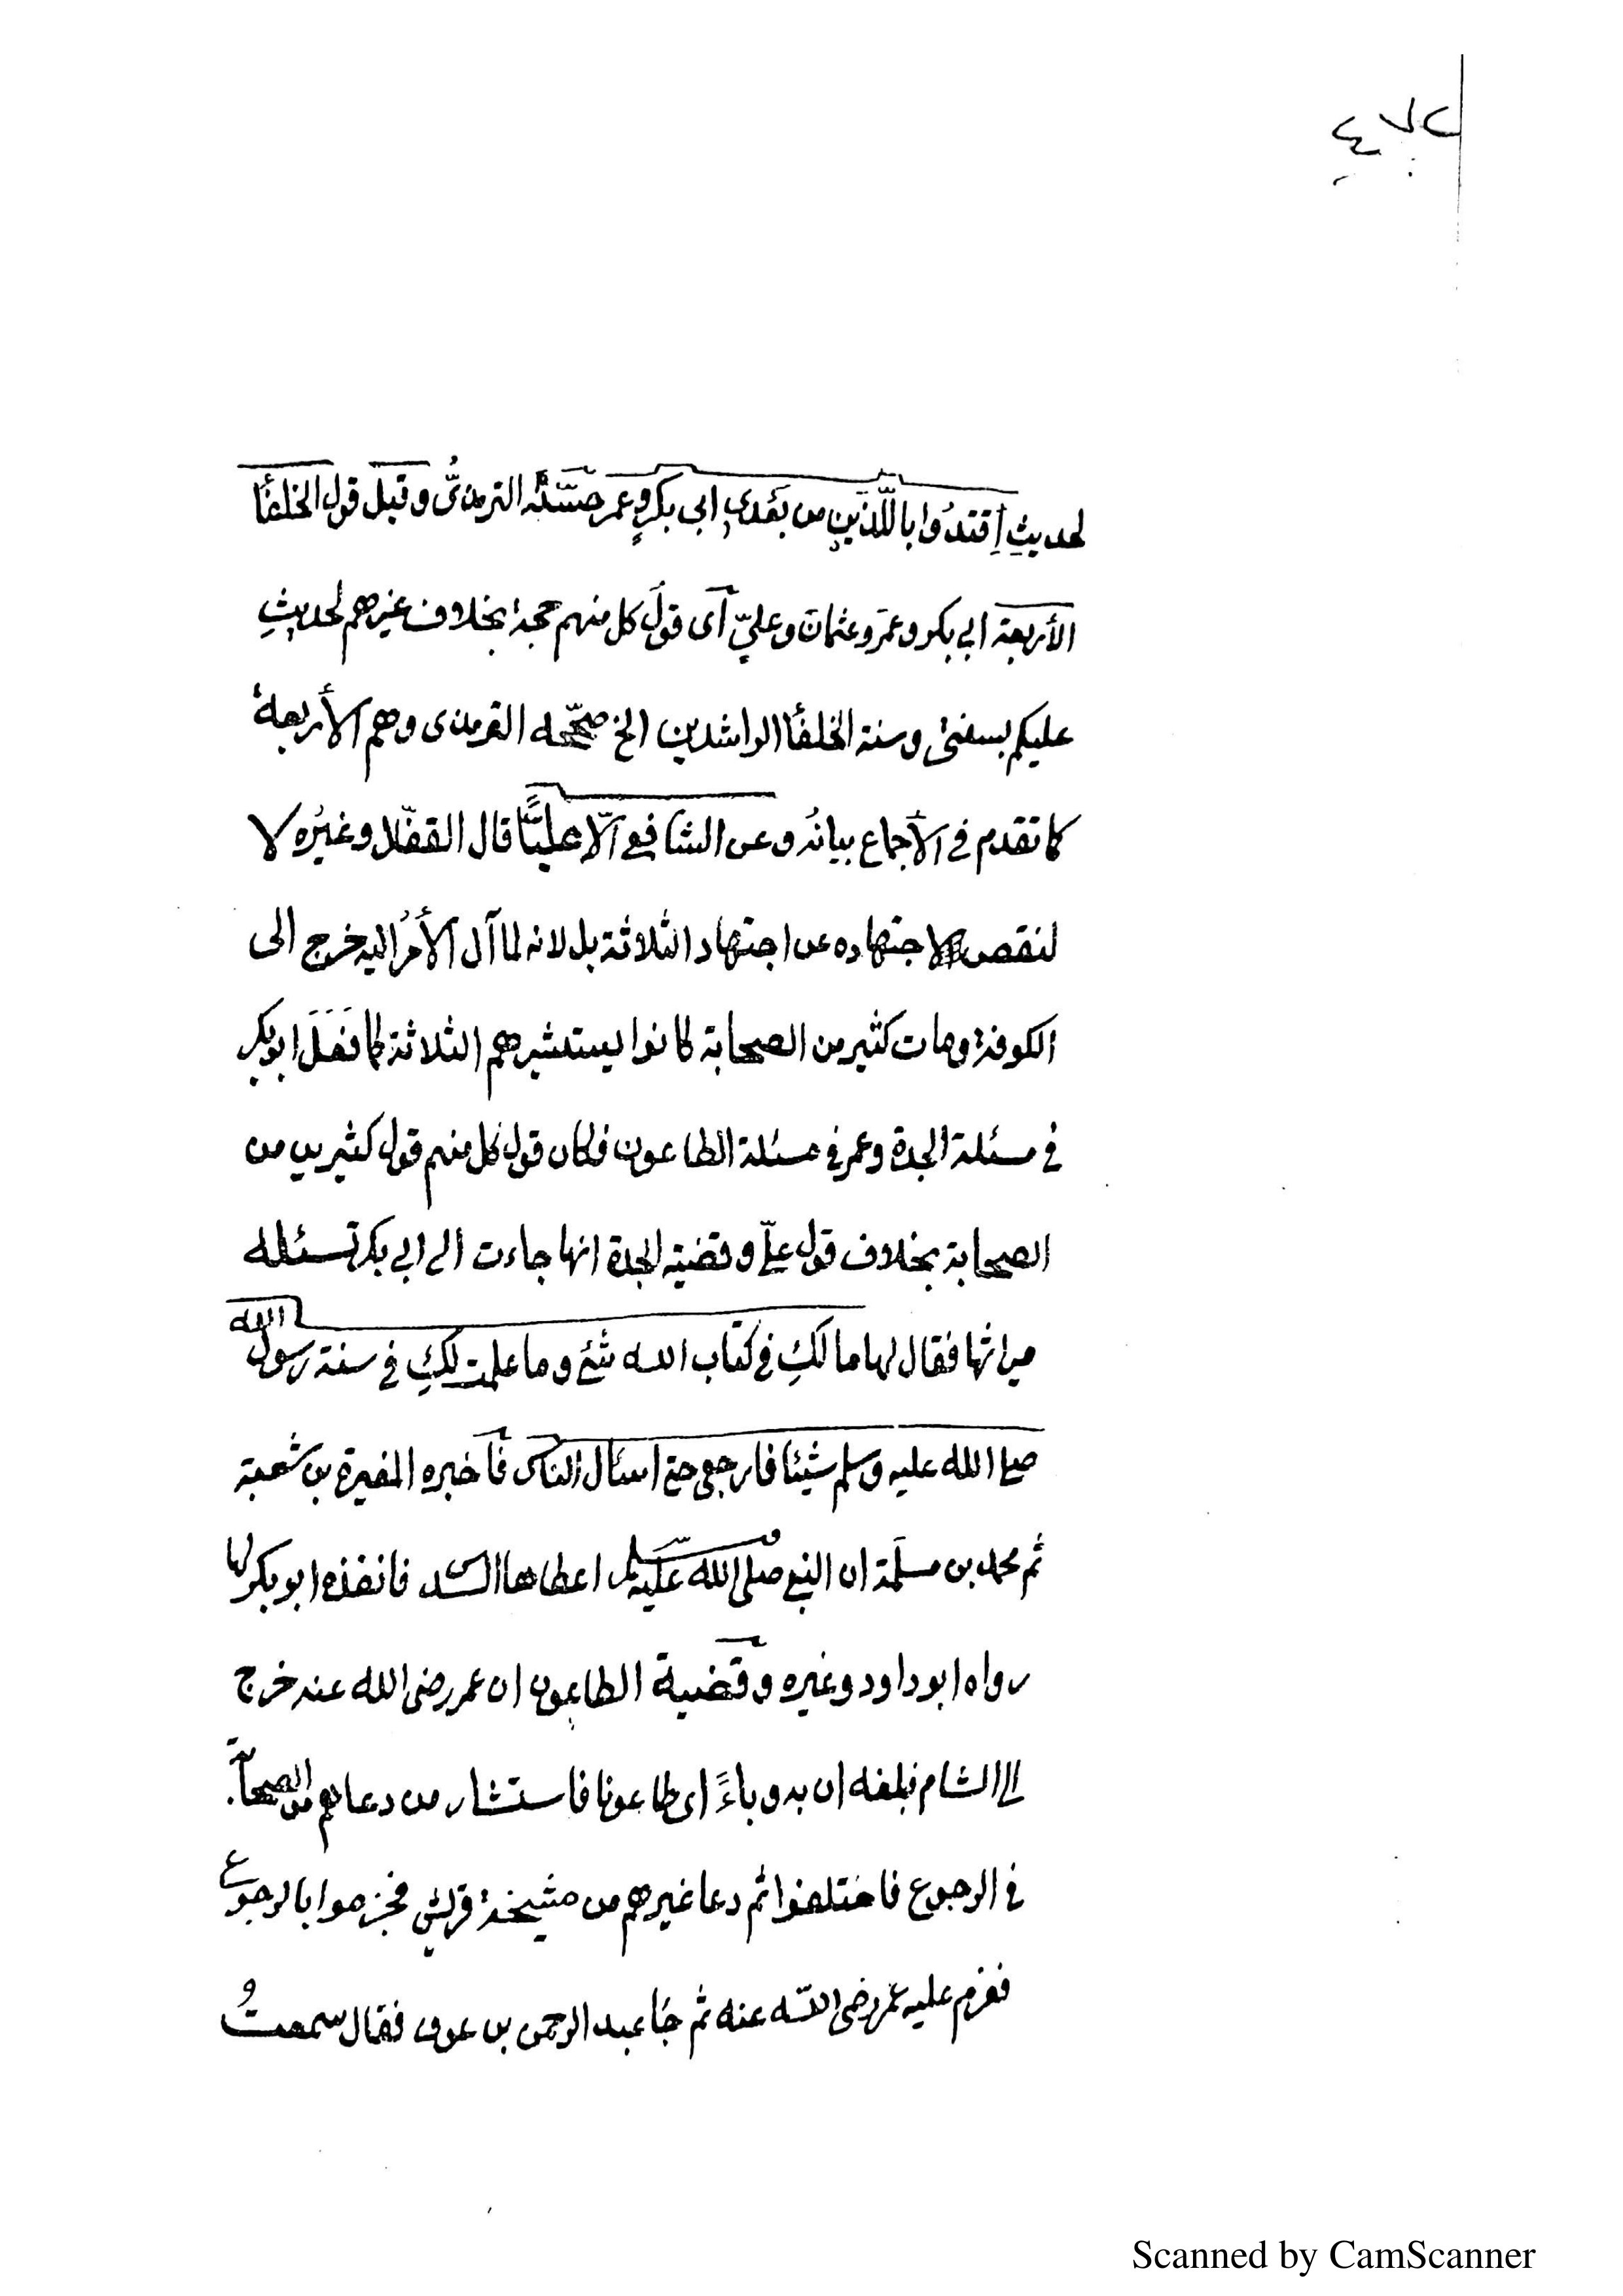 ٤٧٢
لحديثِ اِقتدُوا باللَّذَينِ من بَعْدي ابي بكرٍ وعمر حَسَّنَهُ الترمذىُّ وقيل قول الخلفأ
الأربعة ابي بكر وعمرَ وعثمانَ وعليّ آى قولَ كل منهم حجة بخلاف غيرهم لحديثِ
عليكم بسنتى وسنة الخلفأ الراشدين الخ صحّحه الترمذى وهم الأربعة
كما تقدم في الآجماع بيانُه وعن الشافعي الّا عليًّا قال القفّال وغيرُه لا
لنقص اجتهاده عن اجتهاد الثلاثة بل لانه لما آل الأمرُ اليه خرج الى
الكوفة ومات كثير من الصحابة كانوا يستشيرهم الثلاثة كما فَعَلَ ابو بكر
في مسئلة الجدة وعمر في مسئلة الطاعون فكان قول كل منهم قول كثيرين من
الصحابة بخلاف قول عليّ وقضية الجدة انها جاءت الى ابي بكر تسئله
ميراثها فقال لها ما لكِ في كتاب الله شئ وما علمت لكِ في سنة رسول الله
صلى الله عليه وسلم شيئا فارجعى حتى اسئال الناس فأخبره المغيرة بن شعبة
ثم محمد بن مسلَمة ان النبي صلى الله عليه وسلم اعطاها السدس فانفذه ابو بكر لها
رواه ابو داود وغيره وقضية الطاعون ان عمر رضى الله عنه خرج
الى الشام فبلغه ان به وباءً اى طاعونا فاستشار من دعاهم من الصحابة
في الرجوع فاختلفوا ثم دعا غيرهم من مشيخة قريش فجزموا بالرجوع
فعزم عليه عمر رضى الله عنه ثم جَأ عبد الرحمن بن عوف فقال سمعتُ
Scanned by CamScanner